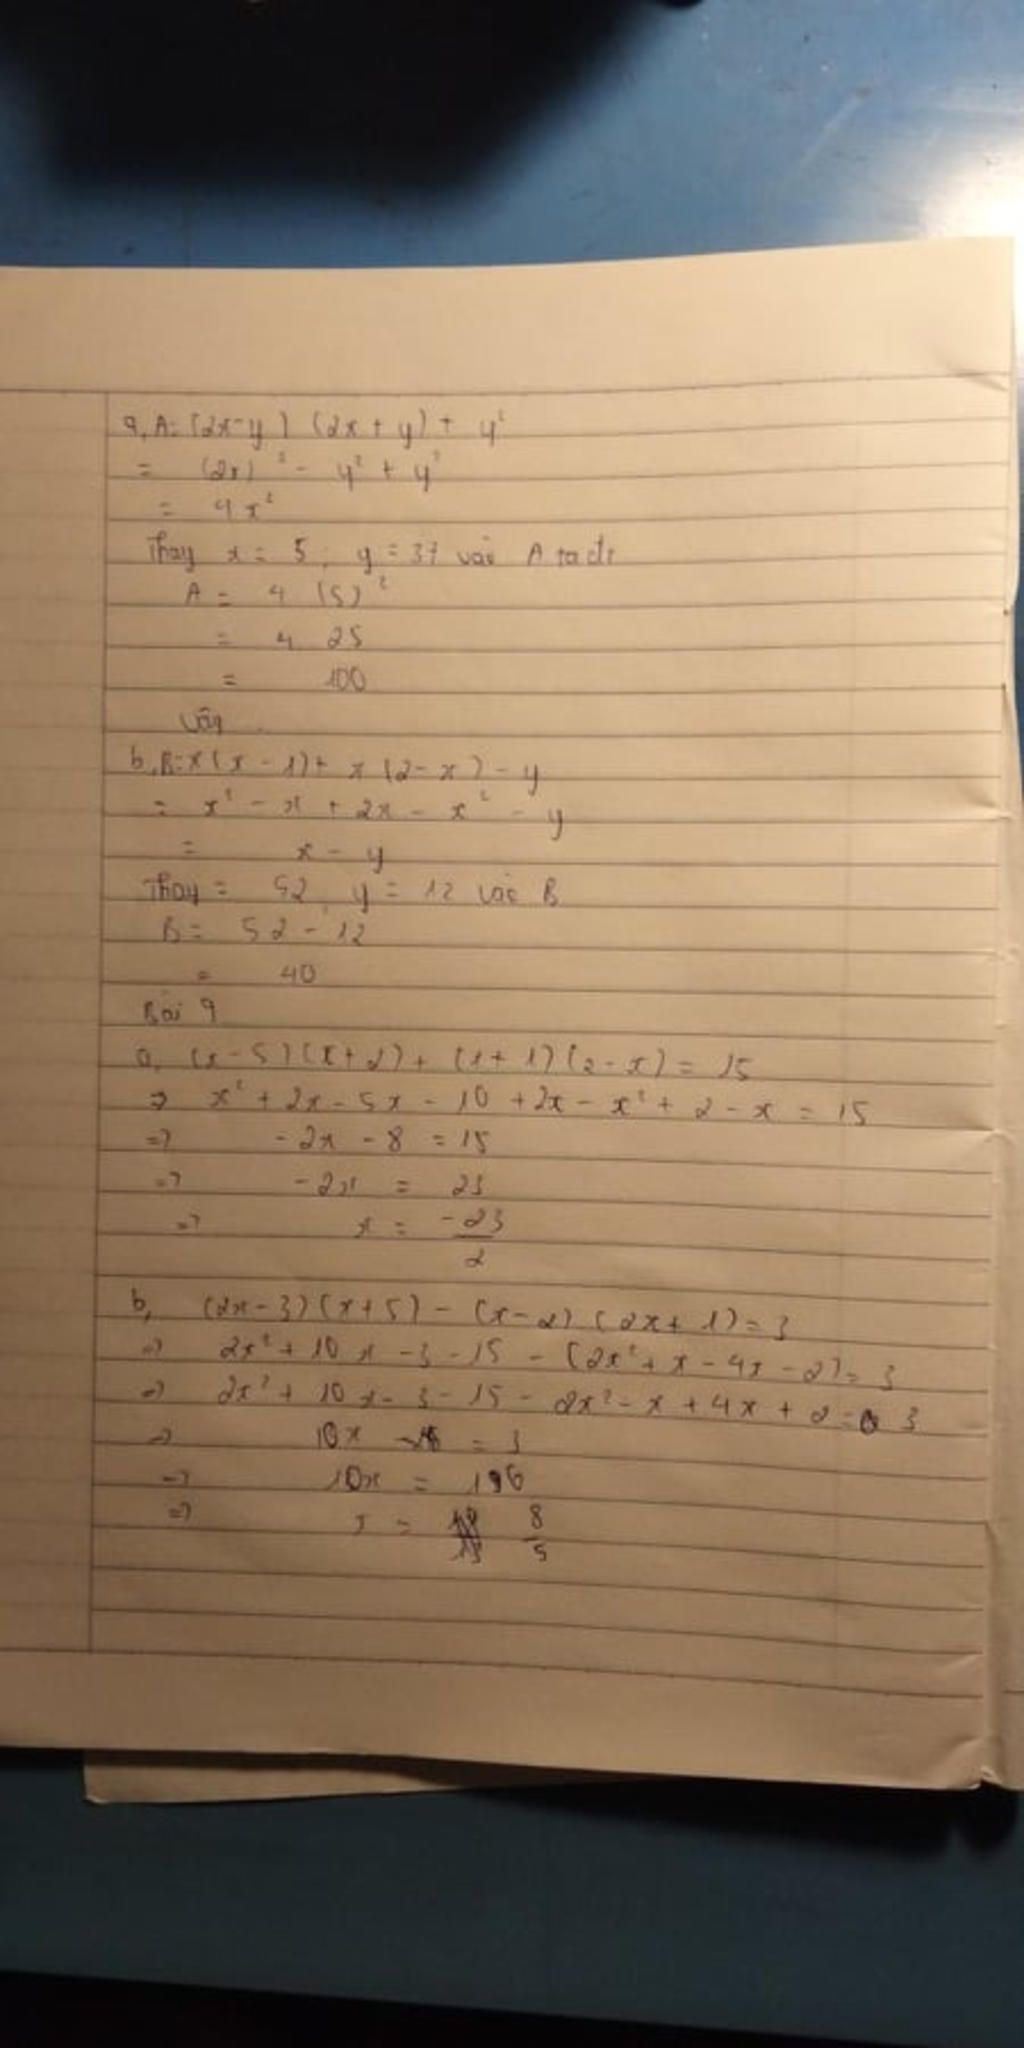 a, A = (2x-y) (2x + y) + y²
= (2x)² - y² + y²
= 4x²
Thay x = 5, y = 37 vào A ta đc
A = 4 (5)²
= 4. 25
= 100
Vậy
b, B = x(x - 1) + x (2 - x) - y
= x² - x + 2x - x² - y
= x - y
Thay = 52, y = 12 vào B
B = 52 - 12
= 40
Bài 9
a, (x - 5) (x + 2) + (x + 1) (2 - x) = 15
=> x² + 2x - 5x - 10 + 2x - x² + 2 - x = 15
=> -2x - 8 = 15
=> -2x = 23
=> x = -23/2
b, (2x - 3) (x + 5) - (x - 2) (2x + 1) = 3
=> 2x² + 10x - 3 - 15 - (2x² + x - 4x - 2) = 3
=> 2x² + 10x - 3 - 15 - 2x² - x + 4x + 2 = 3
=> 10x = 3
=> 10x =
=> x = 8/5